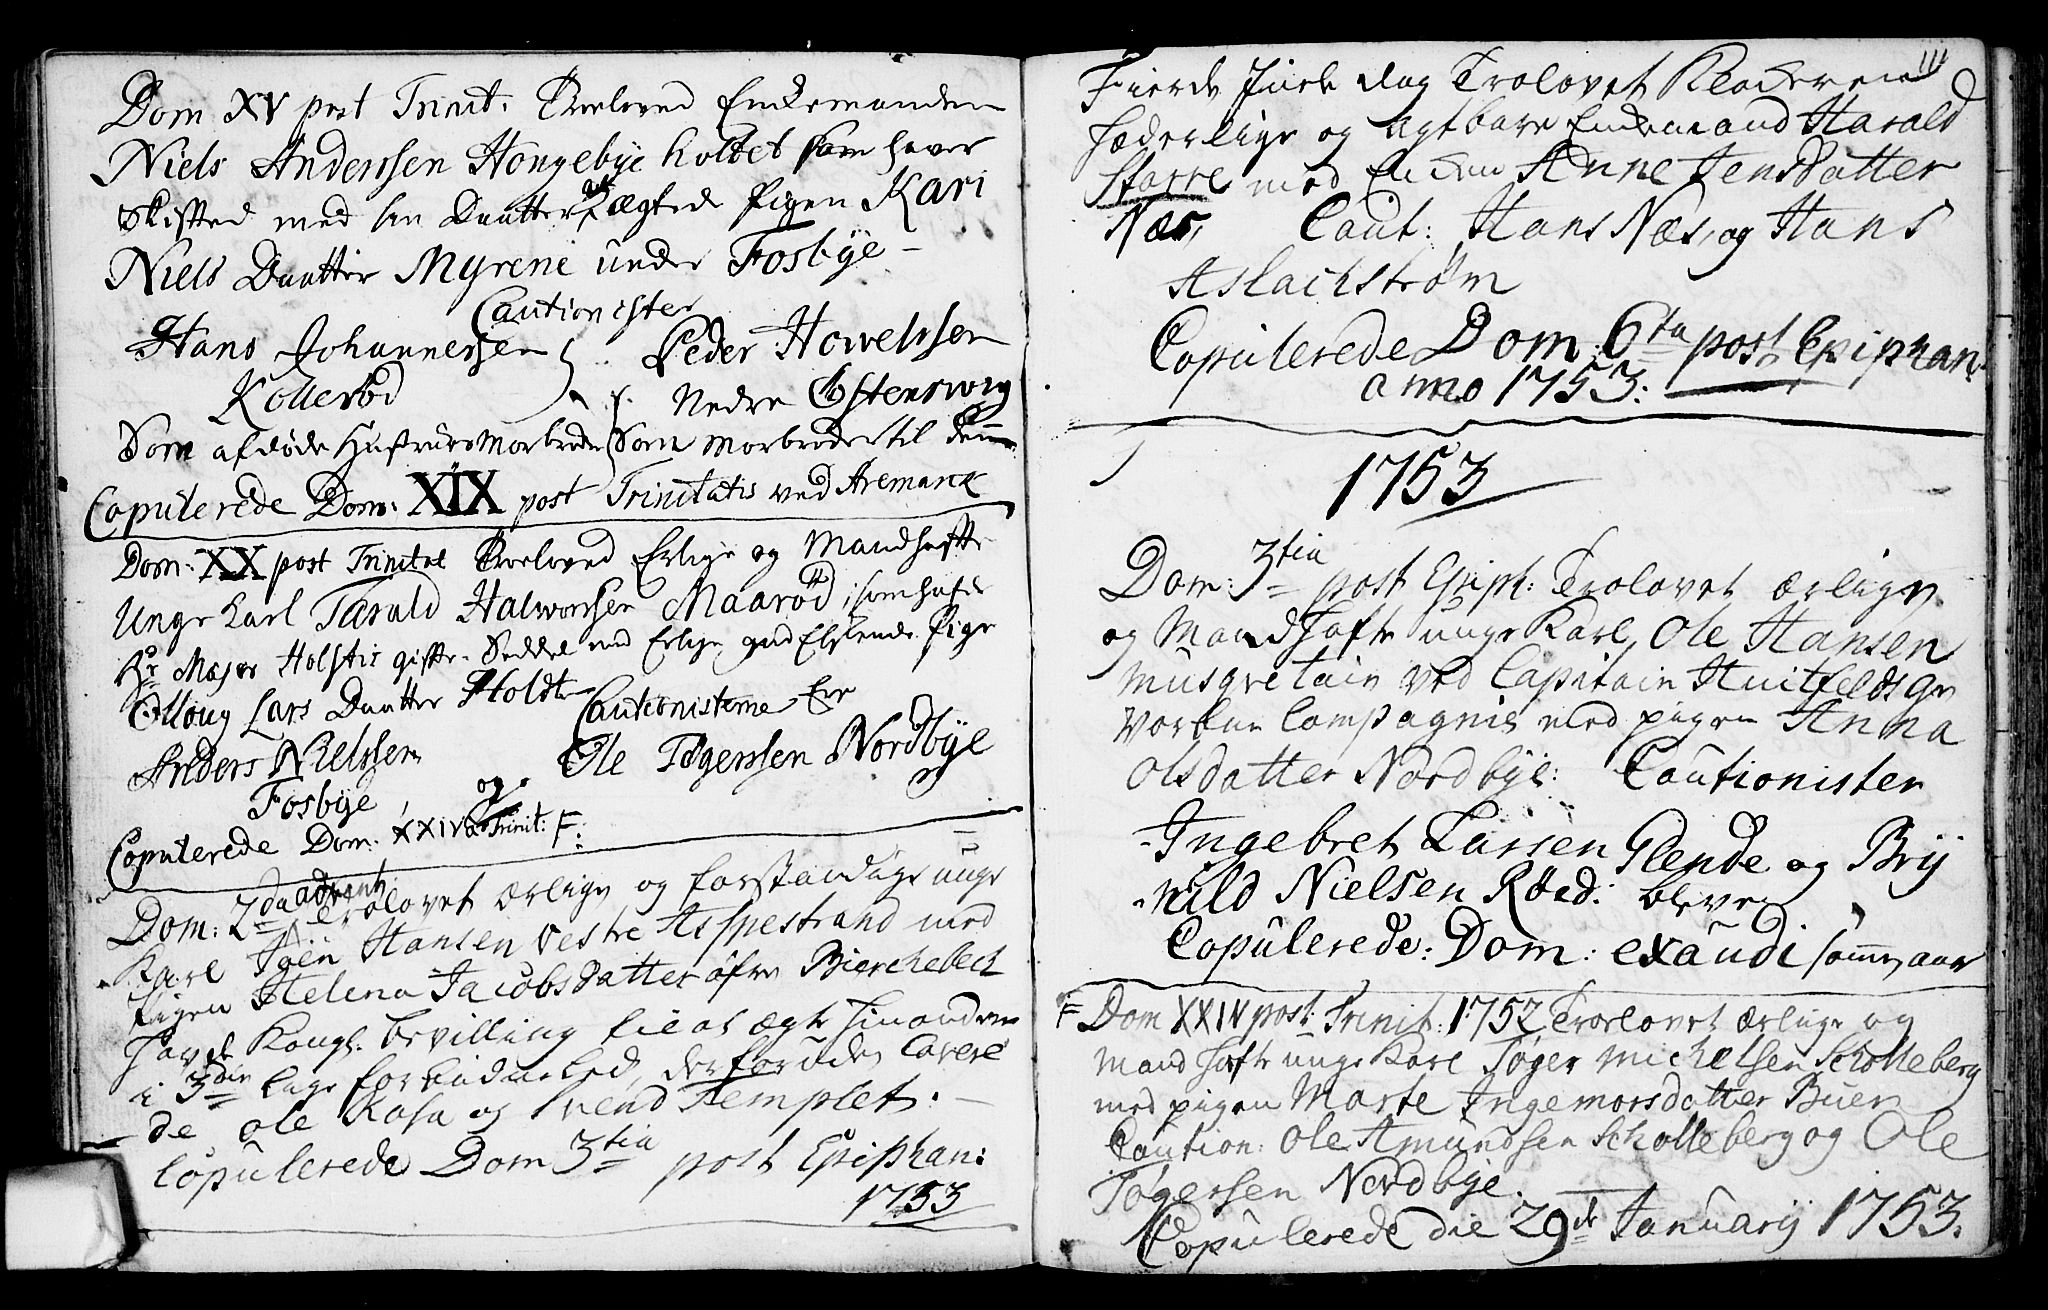 Dom XV post Trinit. Troeloved Enkemanden
Niels Anderssen Hougebye holdet som haver
skifted med sin Daatter ægtede Pigen Kari
Niels Daatter Myrene under Fosbye -
Cautionister
Hans Johannessen Peder Howelssen
Kollerød Nedre Østenswig
Som afdøde Hustrues Morbroder Som Morbroder til denne
Copulerede Dom: XIX post Trinitatis ved Aremarck
Dom: XX post Trinitat Troeloved Erlige og Mandhafte
Unge Karl Tarald Halworssen Maarød, som hafde
Hr Major Holstis gifte-Seddel med Erlige gudElskende Pige
Olloug Lars Daatter Holdt Cautionisterne Er
Anders Nielssen Ole Tøgerssen Nordbye
Fosbye og
Copulerede Dom. XXIV a Trinit: F:
Dom: 2da advent. Trolovet ærlige og forstandige unge
Karl Joen Hansen Vestre Asspestrand med
Pigen Helena Jacobsdatter øfre Bierchebech
havde Kongl: bevilling til at ægte hinanden
i 3die leye forbudne led, derforuden Cavere
de Ole Kasa og Svend Templet. -
Copulerede Dom 3tia post Epiphan:
1753
111
Fierde Jule dag Trolovet Klockeren
hæderlige og Agtbare Enkemand Harald
Storre med Enken Anne Jensdatter
Næs, Caut: Hans Næs, og Hans
Aslachstrøm
Copulerede Dom 6ta post Epiphan.
anno 1753:
1753
Dom: 3tia post Epiph: Trolovet ærlige
og Mandhafte unge Karl, Ole Hansen
Musqvetair ved Capitain Huitfeldts Ge
vorbne Compagnie med pigen Anna
Olsdatter Nordbye: Cautionister
Ingebret Larsen Glende og Bry
nild Nielsen Røed: bleve
Copulerede: Dom: exaudi samme aar
F Dom XXIV post: Trinit: 1752 Troelovet ærlige og
mand hafte unge Karl Tøger Michelsen Scholleberg
med pigen Marte Ingemorsdatter Buer
Caution: Ole Amundsen Scholleberg og Ole
Tøgersen Nordbye.
Copulerede die 29de January 1753.